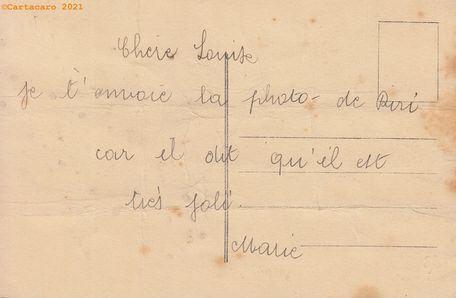 ©Cartacaro 2021
Chère Louise
je t'envoie la photo - de Riri
car il dit qu'il est
très joli.
Marie